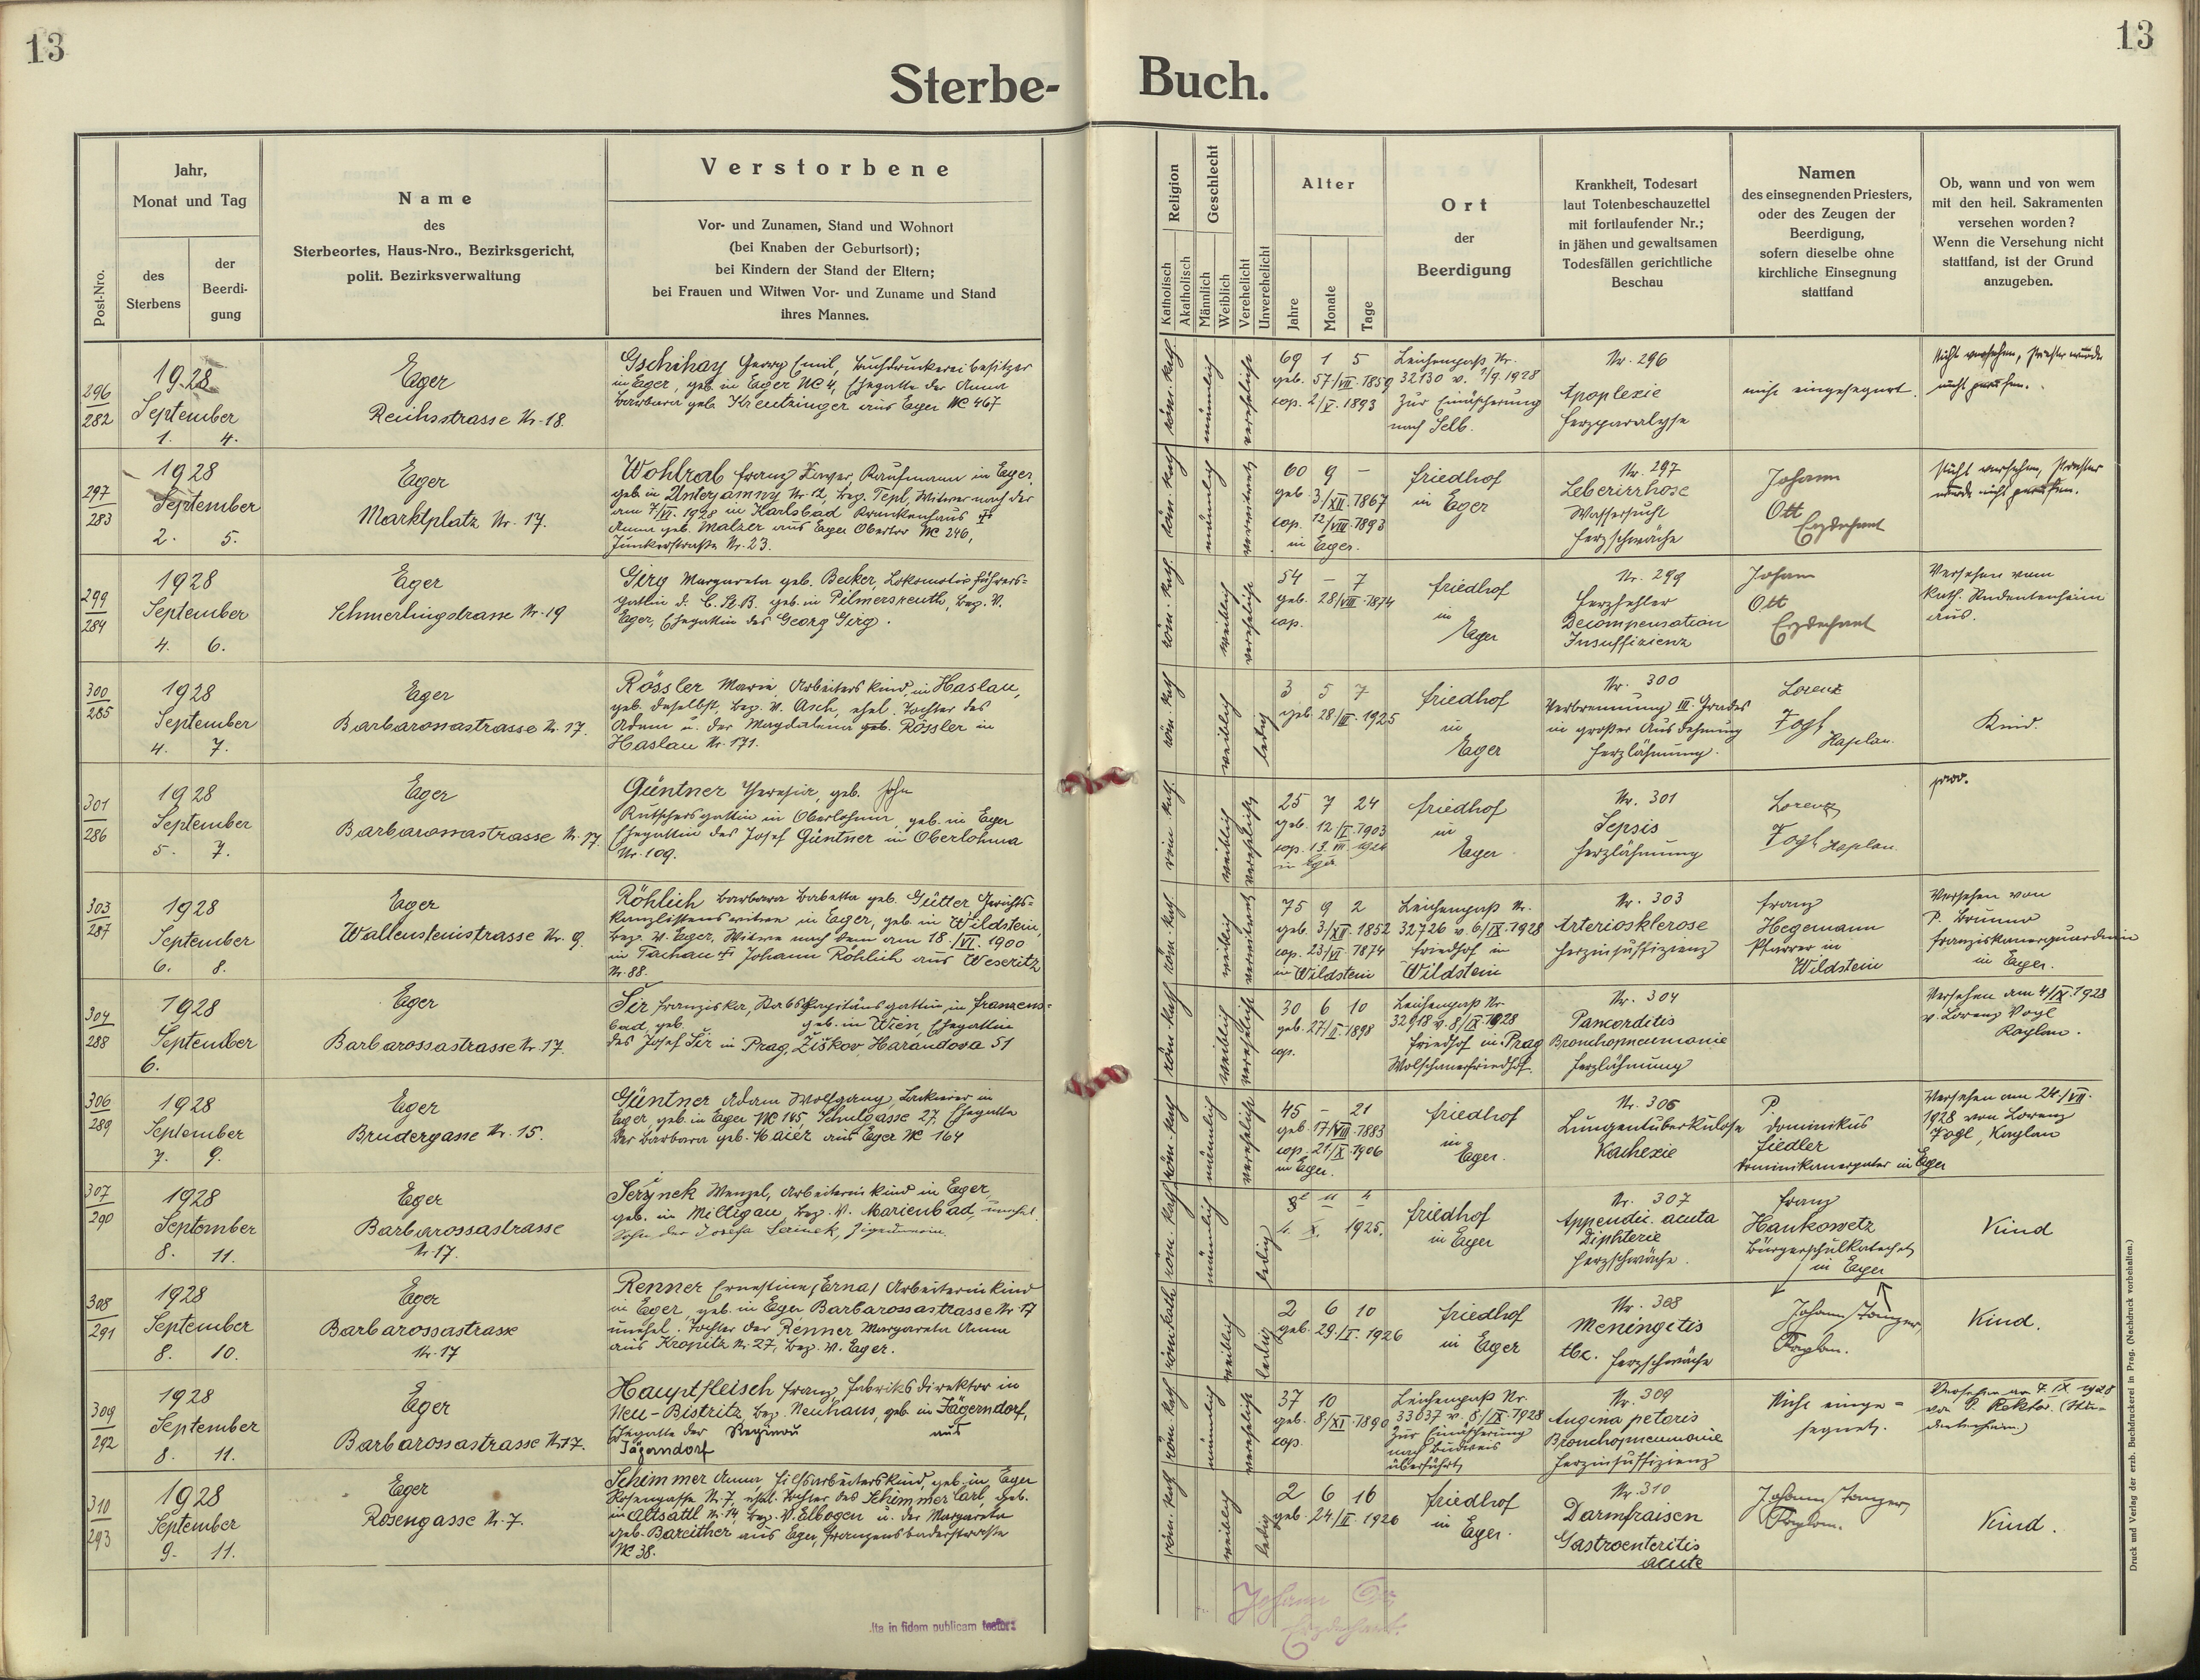 13
13
Sterbe-
Buch.
Post-Nro.
Jahr,
Monat und Tag
des
Sterbens
der
Beerdi-
gung
Name
des
Sterbeortes, Haus-Nro., Bezirksgericht,
polit. Bezirksverwaltung
Verstorbene
Vor- und Zunamen, Stand und Wohnort
(bei Knaben der Geburtsort);
bei Kindern der Stand der Eltern;
bei Frauen und Witwen Vor- und Zuname und Stand
ihres Mannes.
Religion
Katholisch
Akatholisch
Geschlecht
Männlich
Weiblich
Verehelicht
Unverehelicht
Alter
Jahre
Monate
Tage
Ort
der
Beerdigung
Krankheit, Todesart
laut Totenbeschauzettel
mit fortlaufender Nr.;
in jähen und gewaltsamen
Todesfällen gerichtliche
Beschau
Namen
des einsegnenden Priesters,
oder des Zeugen der
Beerdigung,
sofern dieselbe ohne
kirchliche Einsegnung
stattfand
Ob, wann und von wem
mit den heil. Sakramenten
versehen worden?
Wenn die Versehung nicht
stattfand, ist der Grund
anzugeben.
296
282
1928
September
1. 4.
Eger
Reichsstrasse Nr. 18.
Gschihay Georg Emil, Buchdruckereibesitzer
in Eger, geb. in Eger NC 4, Ehegatte der Anna
Barbara geb. Kreutzinger aus Eger NC 467
röm. kath.
männlich
verehelicht
69 1 5
geb. 57/VII. 1859
cop. 2/V. 1893
Leichenpaß Nr.
32130 v. 1/9. 1928
Zur Einäscherung
nach Selb.
Nr. 296
Apoplexie
Herzparalyse
nicht eingesegnet.
Nicht versehen, Priester wurde
nicht gerufen.
297
283
1928
September
2. 5.
Eger
Marktplatz Nr. 17.
Wohlrab Franz Xaver, Kaufmann in Eger,
geb. in Unterjamny Nr. 12, bez. Tepl, Witwer nach der
am 7/VI. 1928 in Karlsbad Krankenhaus †
Anna geb. Malzer aus Eger Obertor NC 246,
Junkerstraße Nr. 23.
röm. kath
männlich
verwitwet
60 9 -
geb. 3/XII. 1867
cop. 12/VIII. 1893
in Eger.
Friedhof
in Eger
Nr. 297
Lebercirrhose
Wassersucht
Herzschwäche
Johann
Ott
Erzdechant
Nicht versehen, Priester
wurde nicht gerufen.
299
284
1928
September
4. 6.
Eger
Schmerlingstrasse Nr. 19
Girg Margareta geb. Becker, Lokomotivführers-
gattin d. C. St. B. geb. in Pilmersreuth, bez. V.
Eger, Ehegattin des Georg Girg.
röm. kath.
weiblich
verehelicht
54 - 7
geb. 28/VIII. 1874
cop.
Friedhof
in
Eger
Nr. 299
Herzfehler
Decompensation
Insuffizienz
Johann
Ott
Erzdechant
Versehen vom
kath. Studentenheim
aus.
300
285
1928
September
4. 7.
Eger
Barbarossastrasse Nr. 17.
Rössler Marie, Arbeiterskind, in Haslau,
geb. daselbst, bez. V. Asch, ehel. Tochter des
Adam u. der Magdalena geb. Rössler in
Haslau Nr. 171.
röm. kath
weiblich
ledig
3 5 7
geb. 28/III. 1925
Friedhof
in
Eger
Nr. 300
Verbrennung III. Grades
in großer Ausdehnung
Herzlähmung.
Lorenz
Vogl
Kaplan.
Kind.
301
286
1928
September
5. 7.
Eger
Barbarossastrasse Nr. 17.
Güntner Theresia, geb. John
Kutschersgattin in Oberlohma, geb. in Eger
Ehegattin des Josef Güntner in Oberlohma
Nr. 109.
röm. kath.
weiblich
verehelicht
25 7 24
geb. 12/I. 1903
in Eger
Friedhof
in
Eger.
Nr. 301
Sepsis
Herzlähmung
Lorenz
Vogl Kaplan.
prov.
303
287
1928
September
6. 8.
Eger
Wallensteinstrasse Nr. 9.
Röhlich Barbara Babetta geb. Gütter Gerichts-
kanzlistenswitwe in Eger, geb. in Wildstein,
bez. V. Eger, Witwe nach dem am 18./VI. 1900
in Tachau † Johann Röhlich aus Weseritz
Nr. 88.
röm. kath
weiblich
verwitwet
75 9 2
geb. 3/XII. 1852
cop. 23/VI. 1874
in Wildstein
Leichenpaß Nr.
32726 v. 6/IX. 1928
Friedhof in
Wildstein
Nr. 303
Arteriosklerose
Herzinsuffizienz
Franz
Hegemann
Pfarrer in
Wildstein
Versehen von
P. Brunno
Franziskanerguardian
in Eger.
304
288
1928
September
6.
Eger
Barbarossastrasse Nr. 17.
Šir Franziska, Stabskapitänsgattin, in Franzens-
bad, geb. geb. in Wien, Ehegattin
des Josef Šir in Prag, Žiškov, Harandova 51
röm. kath
weiblich
verehelicht
30 6 10
geb. 27/I. 1898
cop.
Leichenpaß Nr.
32918 v. 8/IX. 1928
Friedhof in Prag
Wolschanerfriedhof.
Nr. 304
Pancorditis
Bronchopneumonie
Herzlähmung
Versehen am 4/IX. 1928
v. Lorenz Vogl
Kaplan.
306
289
1928
September
7. 9.
Eger
Brudergasse Nr. 15.
Güntner Adam Wolfgang, Lackierer in
Eger, geb. in Eger NC 145, Schulgasse 27, Ehegatte
der Barbara geb. Maier aus Eger NC 164
röm. kath
männlich
verehelicht
45 - 21
geb. 17/VIII. 1883
cop. 21/X. 1906
in Eger.
Friedhof
in
Eger.
Nr. 306
Lungentuberkulose
Kachexie
P.
Dominikus
Fiedler
Dominikanerpater in Eger
Versehen am 24./VII.
1928 von Lorenz
Vogl, Kaplan
307
290
1928
September
8. 11.
Eger
Barbarossastrasse
Nr. 17.
Seřynek Wenzel, Arbeiterinkind in Eger,
geb. in Miltigau, bez. V. Marienbad, unehel.
Sohn der Josefa Serinek, Zigeunerin.
röm. kath
männlich
ledig
4. X. 1925.
Friedhof
in Eger
Nr. 307
Appendic. acuta
Diphterie
Herzschwäche.
Franz
Hankowetz
Bürgerschulkatechet
in Eger
Kind
308
291
1928
September
8. 10.
Eger
Barbarossastrasse
Nr. 17
Renner Ernestine (Erna) Arbeiterinkind
in Eger, geb. in Eger Barbarossastrasse Nr. 17
unehel. Tochter der Renner Margareta Anna
aus Kropitz Nr. 27, bez. V. Eger.
röm. kath.
weiblich
ledig
2 6 10
geb. 29./I. 1926
Friedhof
in Eger
Nr. 308
Meningitis
tbc. Herzschwäche
Johann Stanger,
Kaplan.
Kind.
309
292
1928
September
8. 11.
Eger
Barbarossastrasse Nr. 17.
Hauptfleisch Franz Fabriksdirektor in
Neu-Bistritz, bez. Neuhaus, geb. in Jägerndorf,
Ehegatte der Regina aus
Jägerndorf
röm. kath
männlich
verehelicht
37 10
geb. 8/XI. 1890
cop.
Leichenpaß Nr.
33037 v. 8/IX. 1928
Zur Einäscherung
nach Budweis
überführt
Nr. 309
Angina petoris
Bronchopneumonie
Herzinsuffizienz
Nicht einge-
segnet.
Versehen am 7. IX. 1928
von P. Rektor. (Stu-
dentenheim)
310
293
1928
September
9. 11.
Eger
Rosengasse Nr. 7.
Schimmer Anna, Hilfsarbeiterskind, geb. in Eger
Rosengasse Nr. 7, ehel. Tochter des Schimmer Carl, geb.
in Altsattl Nr. 14, bez. V. Elbogen u. der Margareta
geb. Bareither aus Eger, Franzensbaderstrasse
NC 38.
röm. kath
weiblich
ledig
2 6 16
geb. 24/II. 1926
Friedhof
in Eger.
Nr. 310
Darmfraisen
Gastroenteritis
acute
Johann Stanger,
Kaplan.
Kind.
Ita in fidem publicam testor:
Johann Ott
Erzdechant.
Druck und Verlag der erzb. Buchdruckerei in Prag. (Nachdruck vorbehalten.)